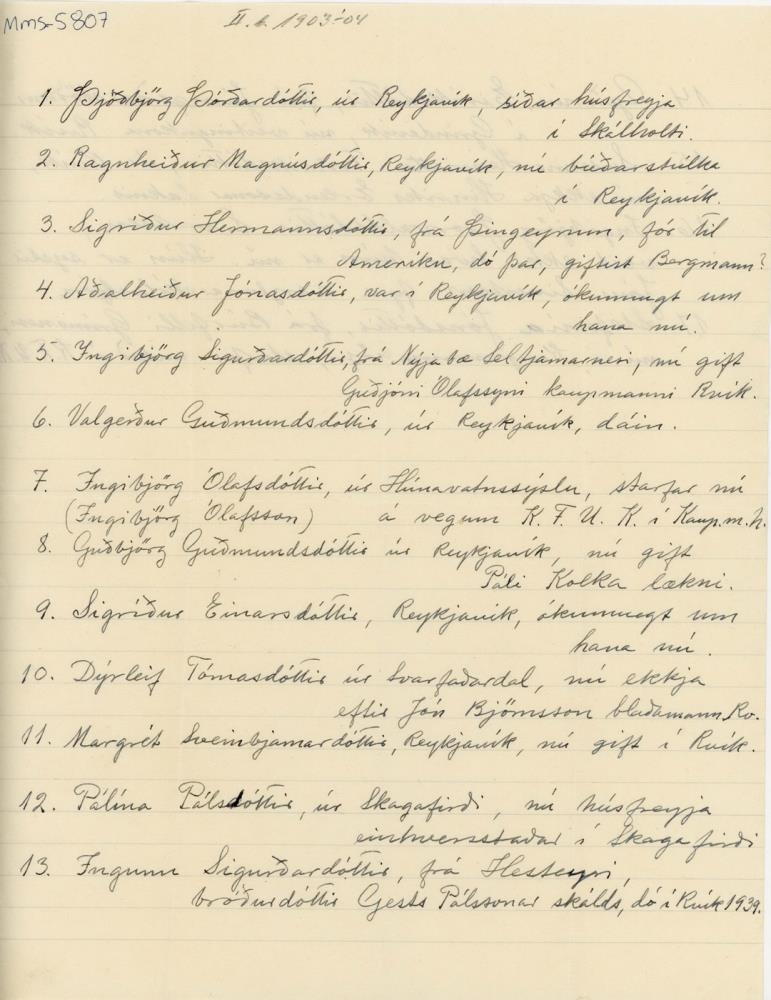 Mms-5807
II. b. 1903-'04
1. Þjóðbjörg Þórðardóttir, úr Reykjavík, síðar húsfreyja
í Skálholti.
2. Ragnheiður Magnúsdóttir, Reykjavík, nú búðarstúlka
í Reykjavík.
3. Sigríður Hermannsdóttir, frá Þingeyrum, fór til
Ameríku, dó þar, giftist Bergmann?
4. Aðalheiður Jónasdóttir, var í Reykjavík, ókunnugt um
hana nú.
5. Ingibjörg Sigurðardóttir, frá Nýja bæ Seltjarnarnesi, nú gift
Guðjóni Ólafssyni kaupmanni Rvík.
6. Valgerður Guðmundsdóttir, úr Reykjavík, dáin.
7. Ingibjörg Ólafsdóttir, úr Húnavatnssýslu, starfar nú
(Ingibjörg Ólafsson) á vegum K.F.U.K. í Kaup.m.h.
8. Guðbjörg Guðmundsdóttir úr Reykjavík, nú gift
Páli Kolka lækni.
9. Sigríður Einarsdóttir, Reykjavík, ókunnugt um
hana nú.
10. Dýrleif Tómasdóttir úr Svarfaðardal, nú ekkja
eftir Jón Björnsson blaðamann, Rv.
11. Margrét Sveinbjarnardóttir, Reykjavík, nú gift í Rvík.
12. Pálína Pálsdóttir, úr Skagafirði, nú húsfreyja
einhversstaðar í Skagafirði
13. Ingunn Sigurðardóttir, frá Hesteyri,
bróðurdóttir Gests Pálssonar skálds, dó í Rvík 1939.